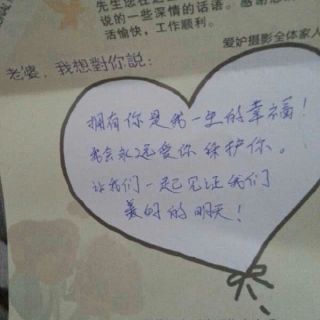 先生您在这
说的一些深情的话语。感谢您
活愉快，工作顺利。
爱妒摄影全体家人
老婆，我想對你說：
拥有你是我一生的幸福！
我会永远爱你保护你。
让我们一起见证我们
美好的明天！